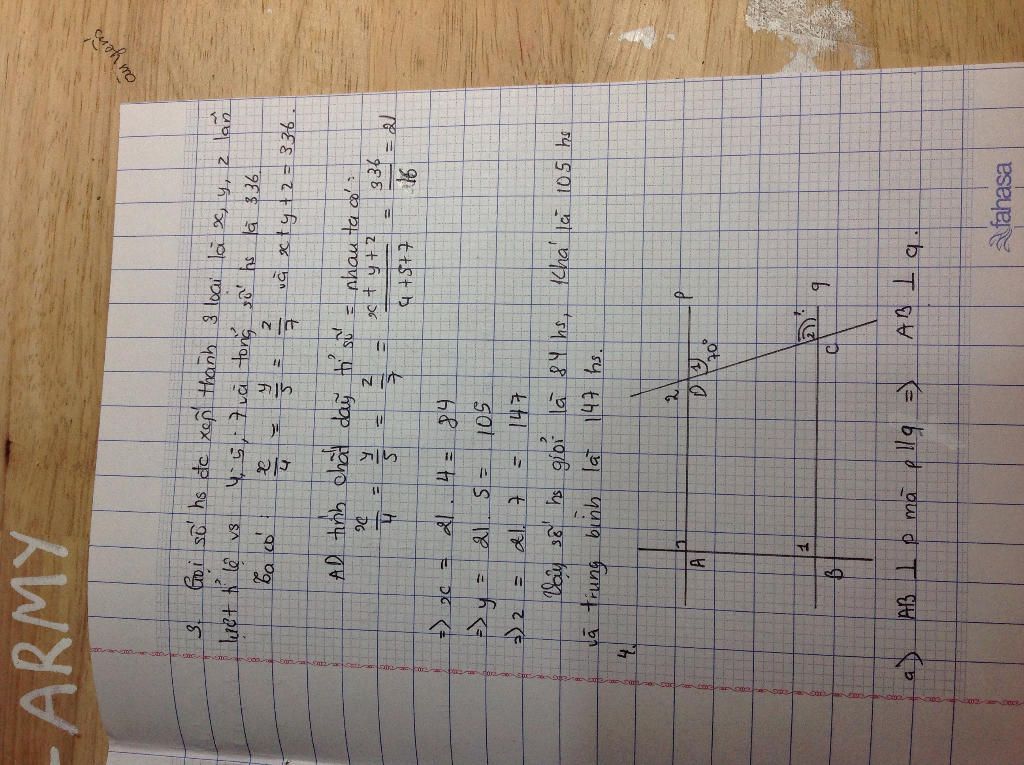 3. Gọi số hs đc xếp thành 3 loại là x, y, z lần
lượt tỉ lệ vs 4; 5; 7 và tổng số hs là 336
Ta có: x/4 = y/5 = z/7 và x + y + z = 336.
AD tính chất dãy tỉ số = nhau ta có:
x/4 = y/5 = z/7 = x + y + z / 4 + 5 + 7 = 336/16 = 21
=> x = 21 . 4 = 84
=> y = 21 . 5 = 105
=> z = 21 . 7 = 147
Vậy số hs giỏi là 84 hs, khá là 105 hs
và trung bình là 147 hs.
4.
2 P
A D 1 70°
1 2 1 q
B C
a) AB ⊥ p mà p // q => AB ⊥ q.
fahasa
-ARMY